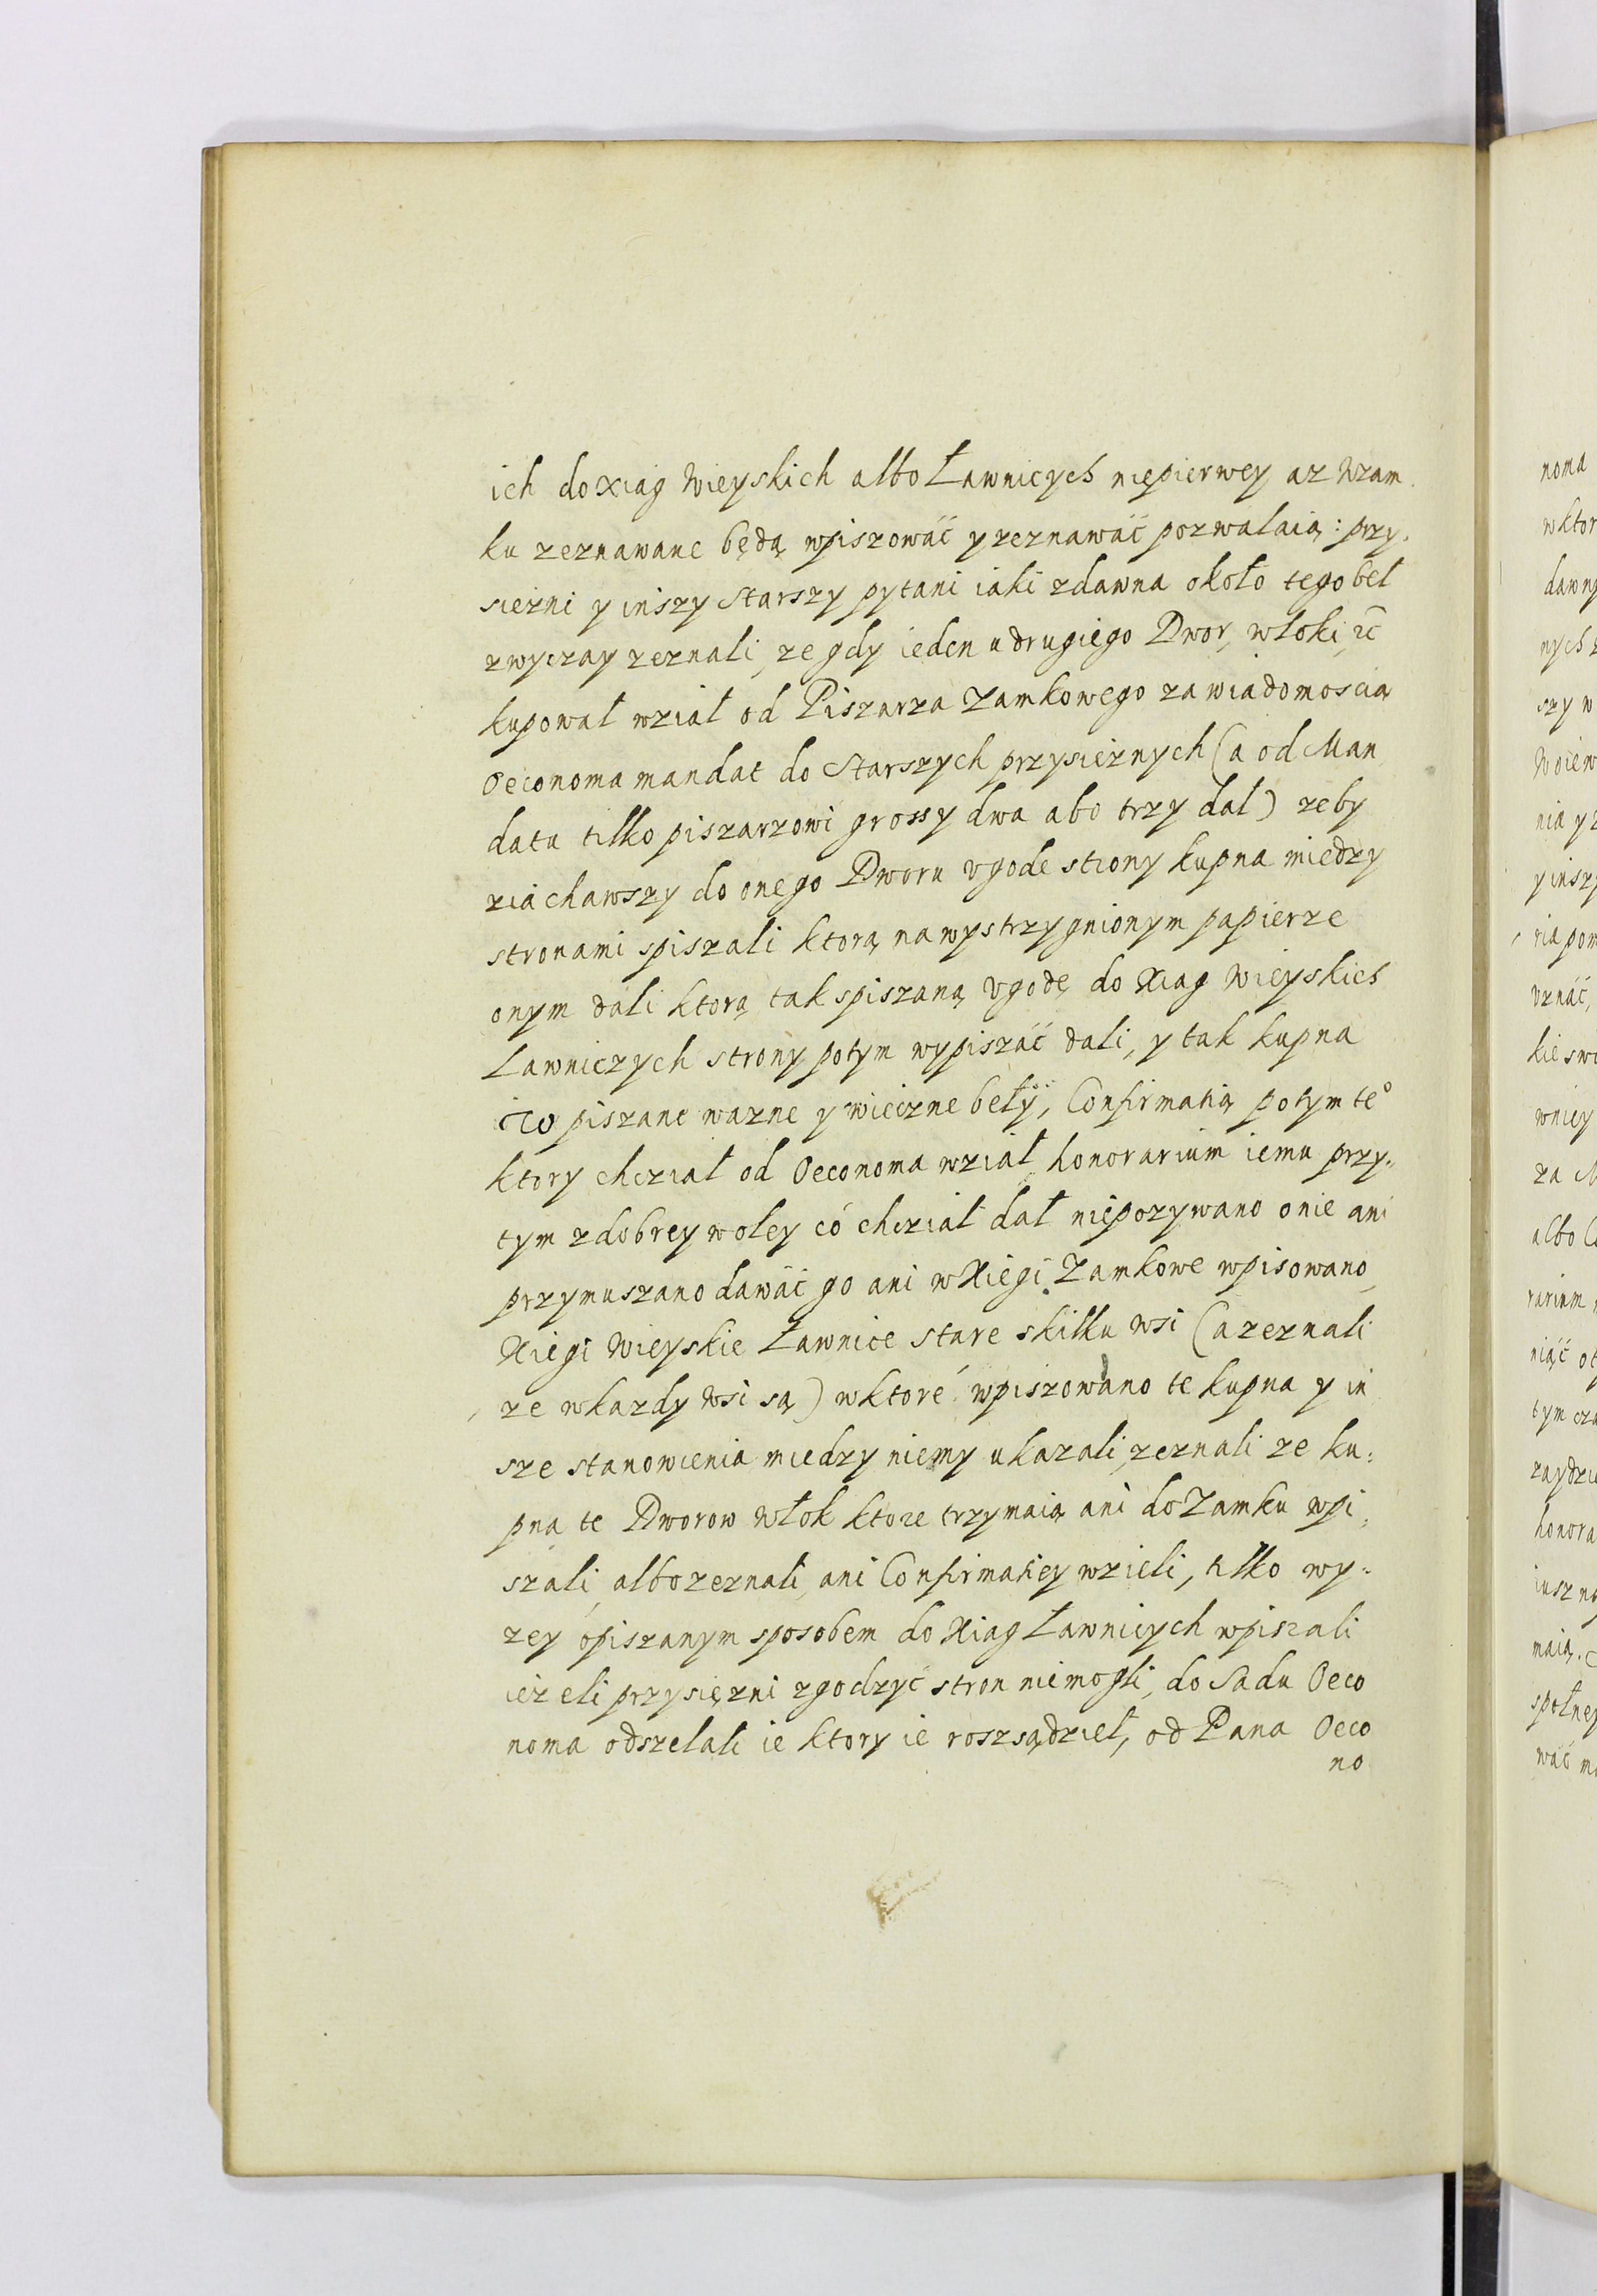 ich do Xiąg Wieyskich albo Ławnicych niepierwey az Wzam
ku zeznawane będą wpiszowáć y zeznawáć pozwalaią: przy,
siezni y inszy starszy pytani iaki zdawna około tego beł
zwyczay zeznali, ze gdy ieden u drugiego Dwor, włoki, ec̃
kupował wziął od Piszarza Zamkowego zawiadomoscią
Oeconoma mandat do starszych przysieznych (a od Man
datu tilko piszarzowi grossy dwa abo trzy dal) zeby
ziachawszy do onego Dworu vgode strony kupna miedzy
stronami spiszali ktorą na wystrzygnionym papierze
onym dali ktorą tak spiszaną vgodę do Xiag Wieyskich
Lawniczych strony potym wypiszáć dali, y tak kupna
To piszane wazne y wieczne beły, Confirmatią potym te°
ktory chcział od Oeconoma wziął, honorarium iemu przy,
tym z dobrey woley có chcział dał niepozywano o nie ani
przymuszano dawáć go ani w Xiegi Zamkowe wpisowano,
Xiegi Wieyskie Ławnice stare skilku wsi (a zeznali
ze wkazdy wsi są) wktoré wpiszowano te kupna y in
sze stanowienia miedzy niemy ukazali, zeznali ze ku,
pna te Dworow Włok ktore trzymaią ani do Zamku wpi,
szali, albo zeznali, ani Confirmatiey wzieli, tilko wy,
zey opiszanym sposobem do Xiag Ławnicych wpiszali
iezeli przysięzni zgodzyć stron niemogli, do Sadu Oeco
noma odszelali ie ktory ie roszsądzieł, od Pana Oeco
no